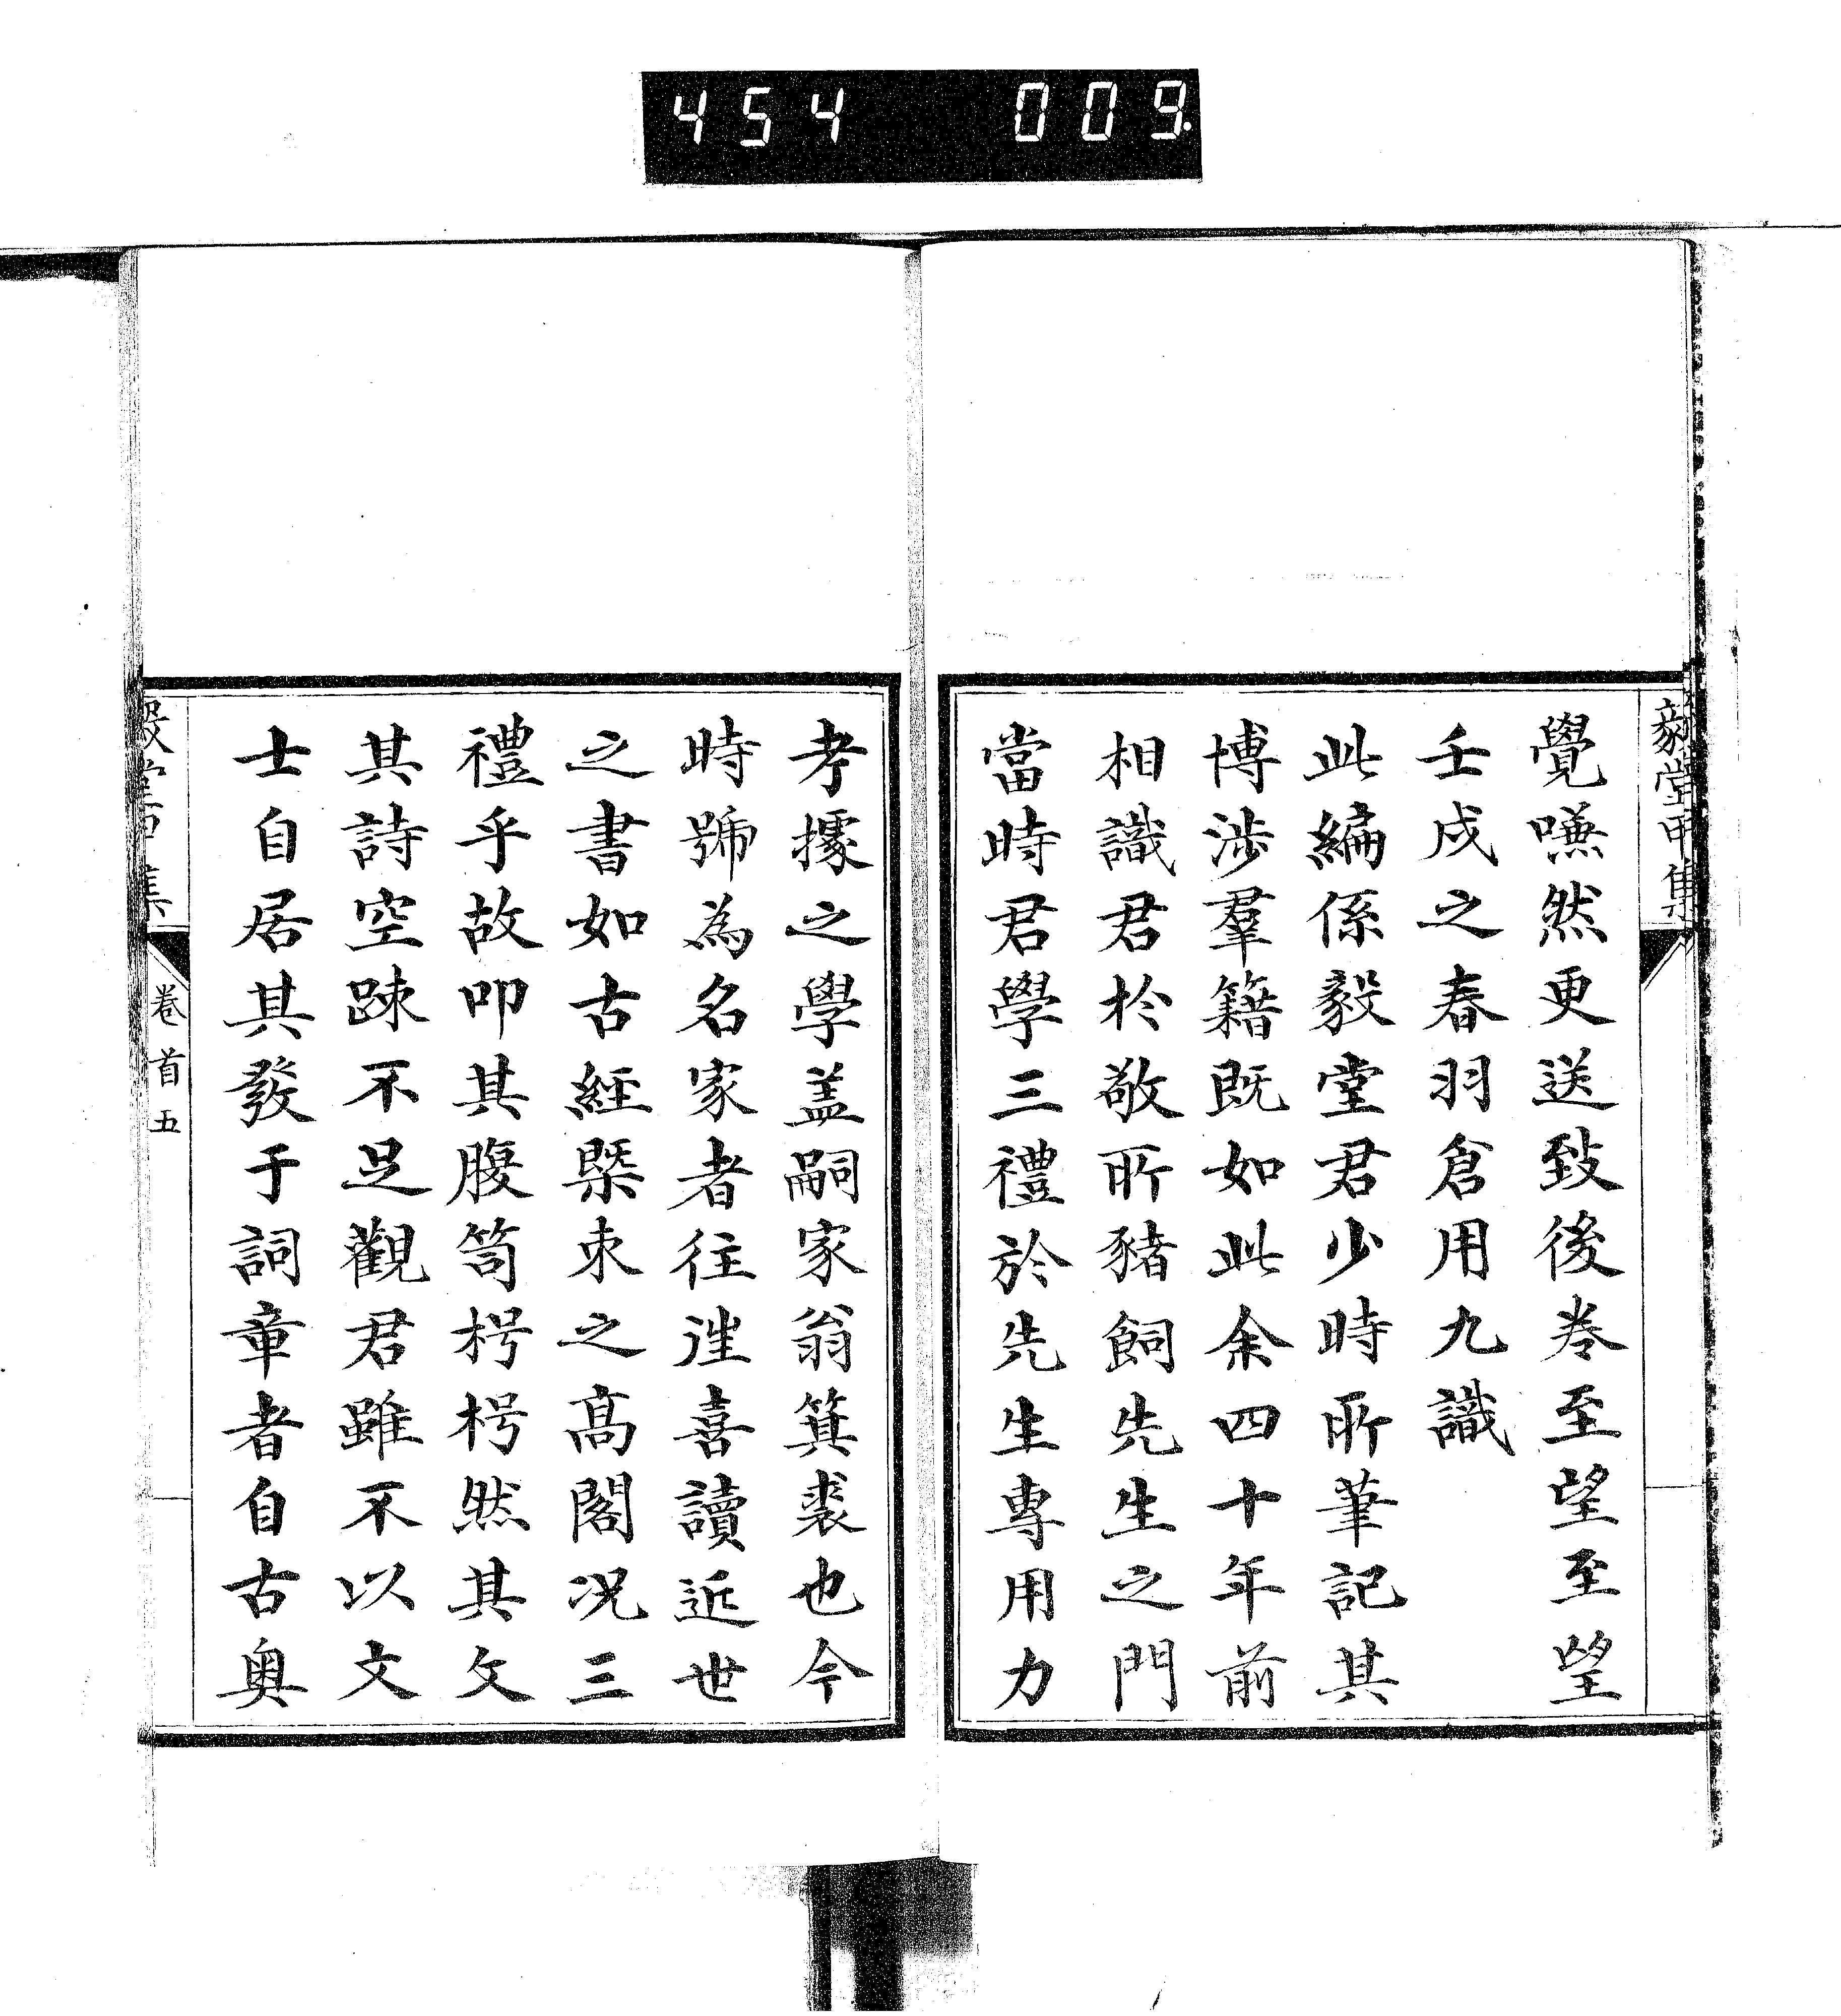 454 009.
毅堂甲集
覺嗛然更送致後巻至望至望
壬戍之春羽倉用九識
此編係毅堂君少時所筆記其
博涉羣籍既如此余四十年前
相識君於敬所豬飼先生之門
當時君學三禮於先生專用力
考據之學盖嗣家翁箕裘也今
時號為名家者往往喜讀近世
之書如古經槩束之高閣况三
禮乎故叩其腹笥枵枵然其文
其詩空疎不足觀君雖不以文
士自居其發于詞章者自古奥
毅堂甲集
卷首
五